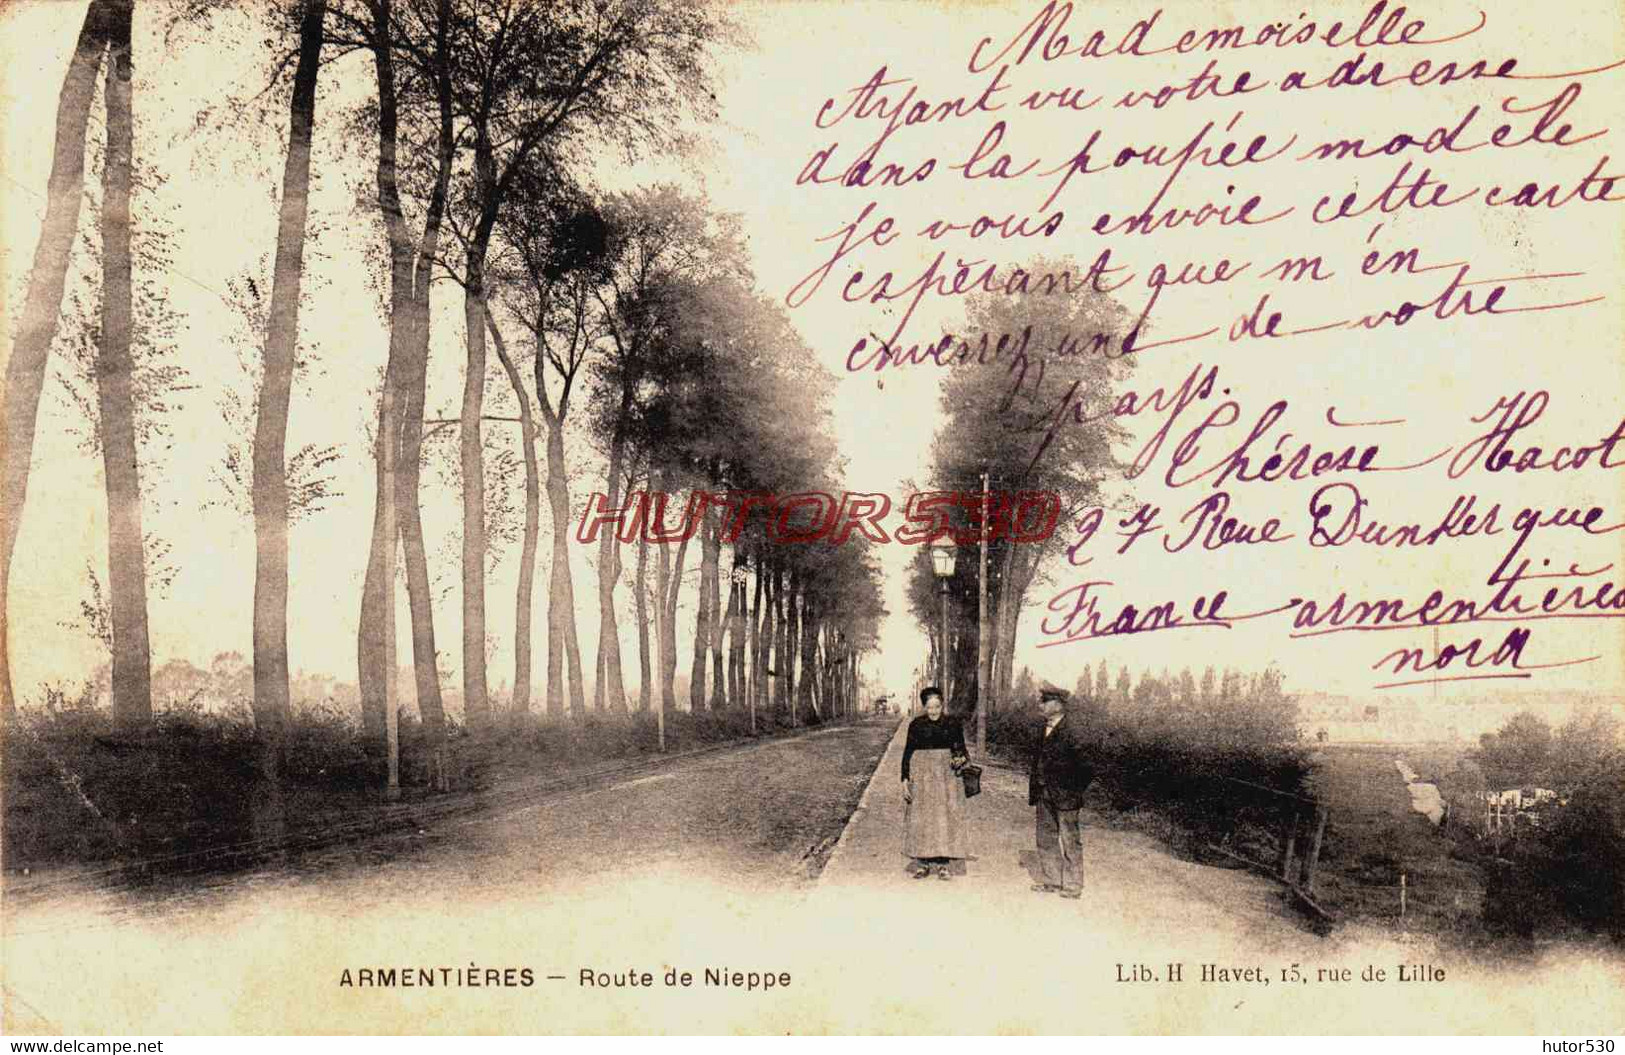 Mademoiselle
Ayant vu votre adresse
dans la poupée modèle
je vous envoie cette carte
espèrant que m'én
enverrez une de votre
pays.
Thérèse Hacot
27 Rue Dunkerque
France armentières
nord
HUTOR530
ARMENTIÈRES — Route de Nieppe
Lib. H Havet, 15, rue de Lille
www.delcampe.net
hutor530